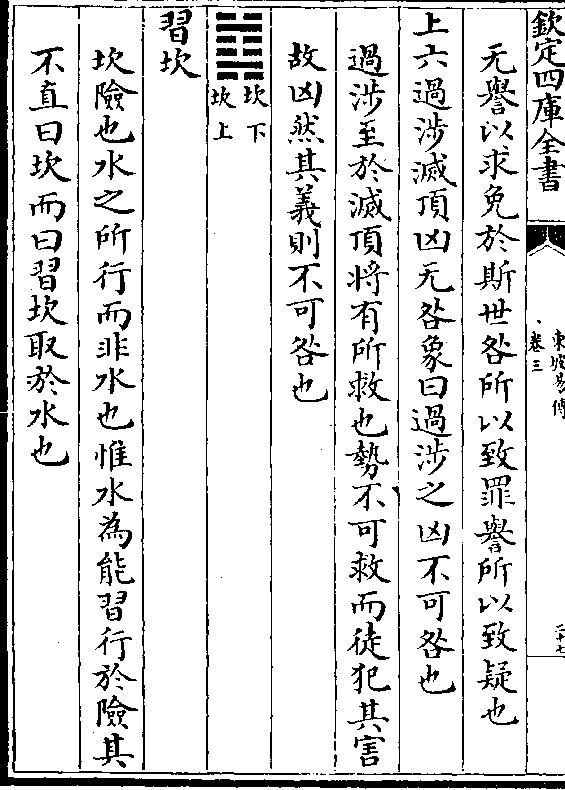 欽定四庫全書
東坡易傳
卷三
二十七
无譽以求免於斯世咎所以致罪譽所以致疑也
上六過涉滅頂凶无咎象曰過涉之凶不可咎也
過涉至於滅頂將有所救也勢不可救而徒犯其害
故凶然其義則不可咎也
䷜
坎下
坎上
習坎
坎險也水之所行而非水也惟水為能習行於險其
不直曰坎而曰習坎取於水也